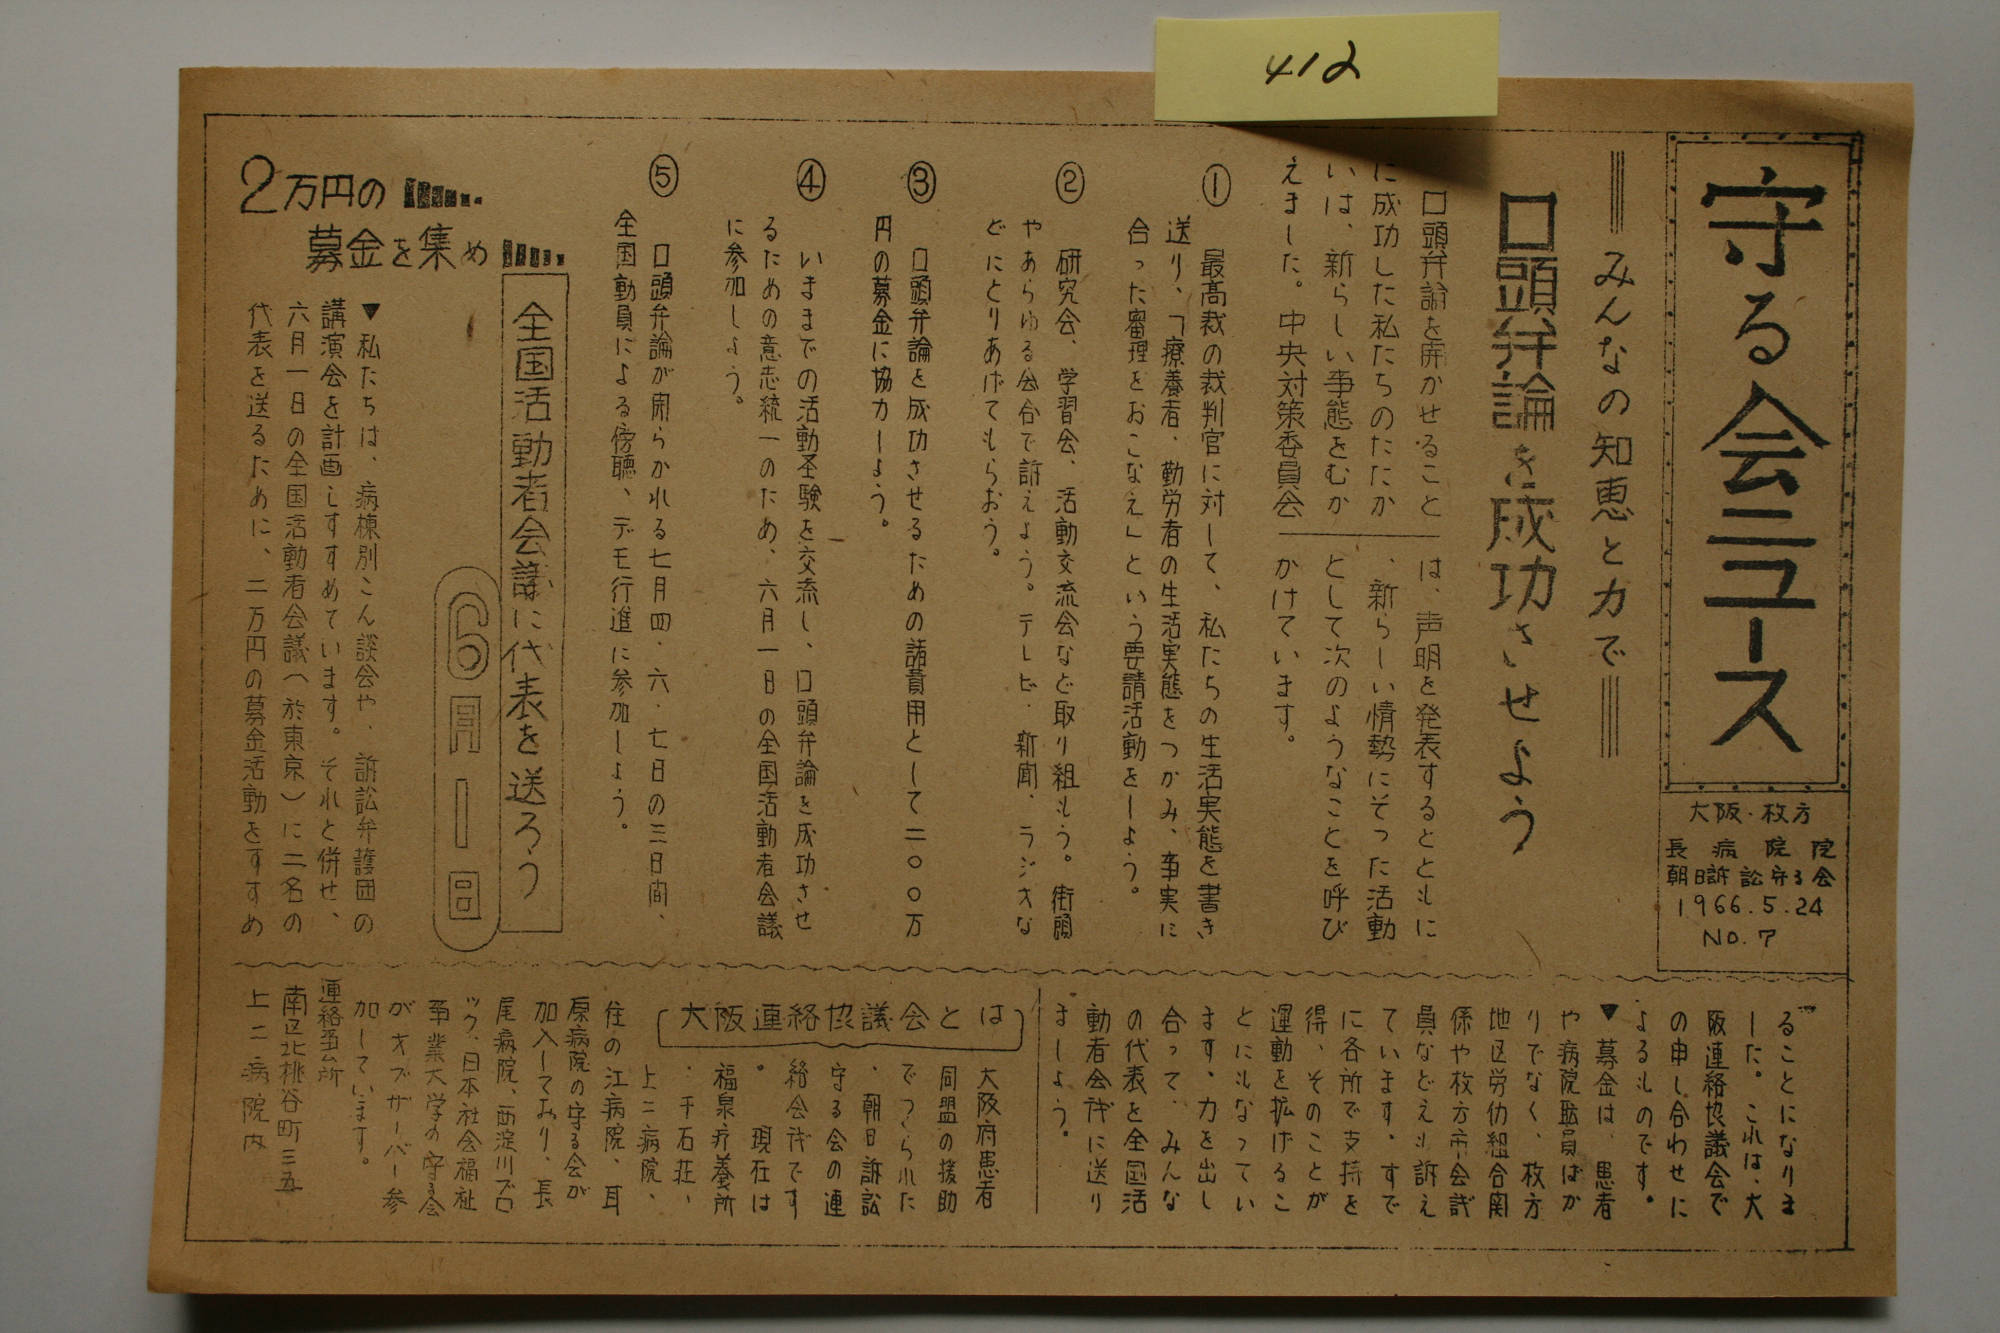 412
守る会ニュース
大阪・枚方
長病院院
朝日訴訟守る会
1966.5.24
NO.7
みんなの知恵と力で
口頭弁論を成功させよう
口頭弁論を開かせること
に成功した私たちのたたか
いは、新らしい事態をむか
えました。中央対策委員会
は、声明を発表するとともに
、新らしい情勢にそった活動
として次のようなことを呼び
かけています。
① 最高裁の裁判官に対して、私たちの生活実態を書き
送り、「療養者・勤労者の生活実態をつかみ、事実に
合った審理をおこなえ」という要請活動をしよう。
② 研究会、学習会、活動交流会など取り組もう。街頭
やあらゆる会合で訴えよう。テレビ・新聞、ラジオな
どにとりあげてもらおう。
③ 口頭弁論を成功させるための諸費用として二〇〇万
円の募金に協力しよう。
④ いままでの活動圣験を交流し、口頭弁論を成功させ
るための意志統一のため、六月一日の全国活動者会議
に参加しよう。
⑤ 口頭弁論が開らかれる七月四・六・七日の三日間、
全国動員による傍聴、デモ行進に参加しよう。
全国活動者会議に代表を送ろう
6月1日
2万円の
募金を集め
▼私たちは、病棟別こん談会や、訴訟弁護団の
講演会を計画しすすめています。それと併せ、
六月一日の全国活動者会議（於東京）に二名の
代表を送るために、二万円の募金活動をすすめ
ることになりま
した。これは、大
阪連絡協議会で
の申し合わせに
よるものです。
▼募金は、患者
や病院職員ばか
りでなく、枚方
地区労仂組合関
係や枚方市会議
員などえも訴え
ています。すで
に各所で支持を
得、そのことが
運動を拡げるこ
とにもなってい
ます。力を出し
合って、みんな
の代表を全国活
動者会議に送り
ましょう。
大阪連絡協議会とは
大阪府患者
同盟の援助
でつくられた
・朝日訴訟
守る会の連
絡会議です
。現在は
福泉療養所
・千石荘、
上二病院、
住の江病院、耳
原病院の守る会が
加入しており、長
尾病院、西淀川ブロ
ック、日本社会福祉
事業大学の守る会
がオブザーバー参
加しています。
連絡場所
南区北桃谷町三五
上二病院内